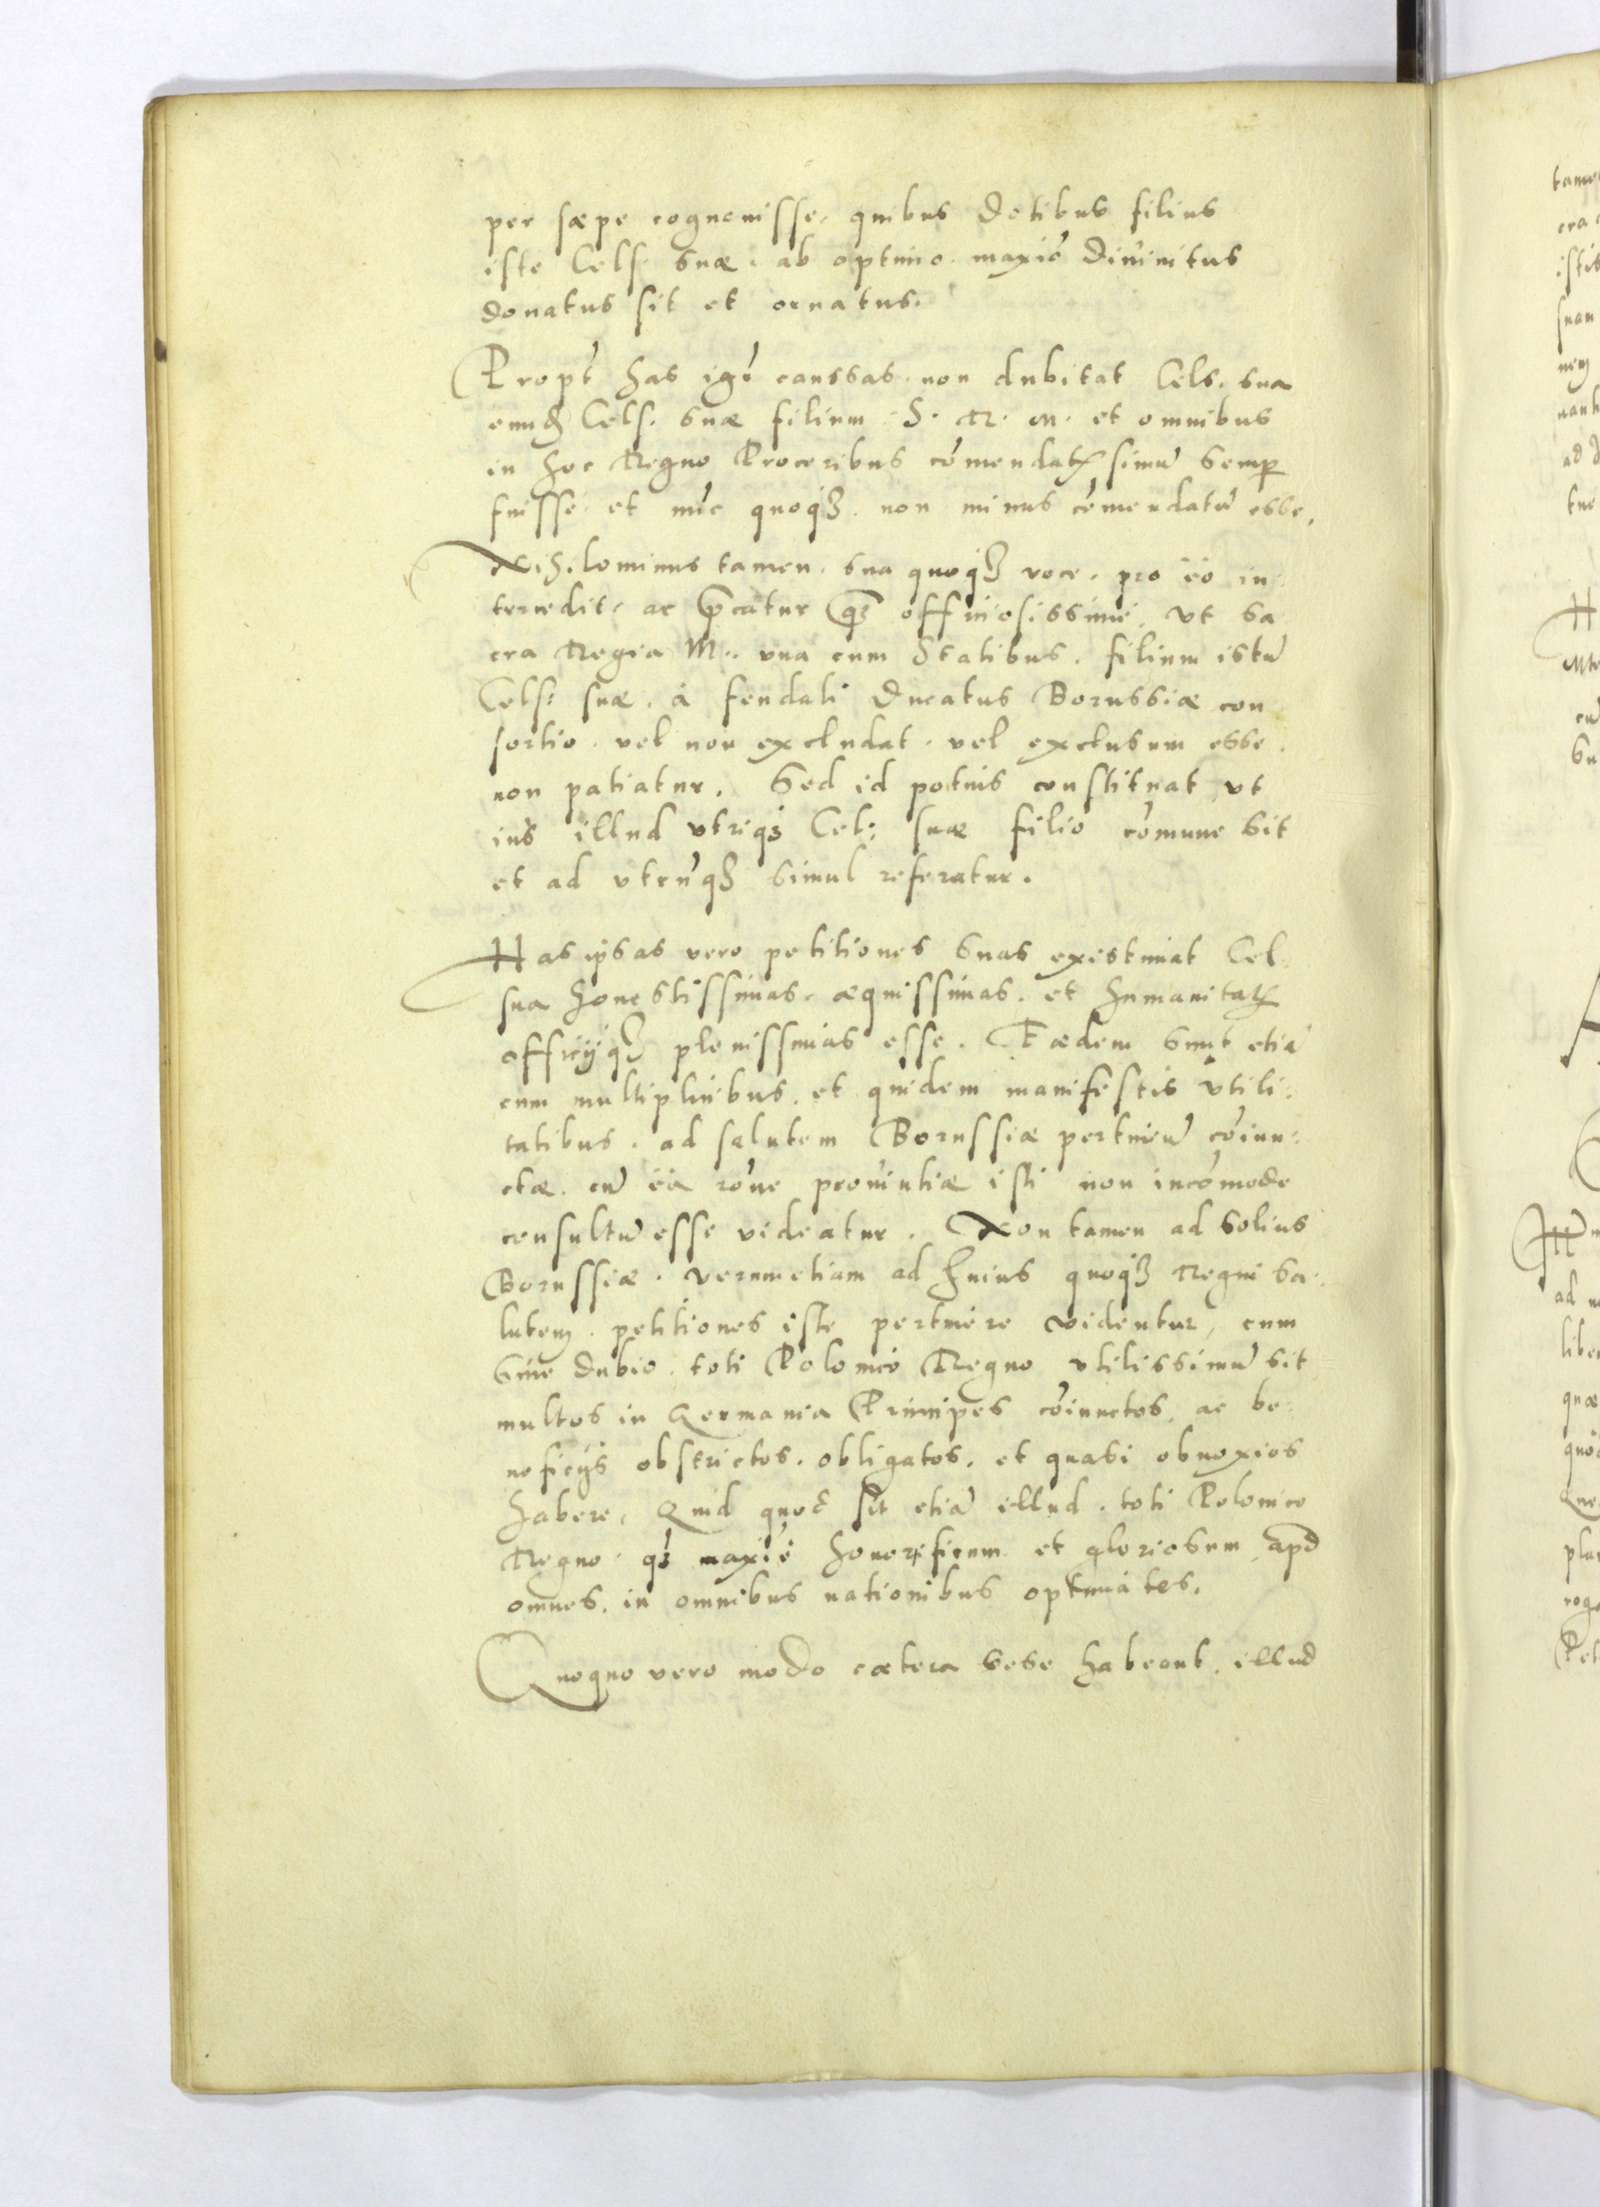 per sæpe cognouisse, quibus dotibus filius
iste Cels. suæ, ab optimo maxiō diuinitus
donatus sit et ornatus.
Propt has igr caussas non dubitat Cels. sua
eund Cels. suæ filium S. R. M. et omnibus
in hoc Regno Proceribus cōmendatissimū semp
fuisse et nūc quoqꝫ non minus cōmendatū esse,
Nihilominus tamen, sua quoqꝫ voce, pro eo in-
tercedit, ac p̄catur qꝫ officiosissime, vt sa
cra Regia M., vna cum Statibus, filium istū
Cels: suæ, à feudali Ducatus Borussiæ con
sortio, vel non excludat, vel exclusum esse
non patiatur. Sed id potius constituat vt
ius illud vtriqꝫ Cel: suæ filio cōmune sit
et ad vtrūqꝫ simul referatur.
Has ipsas vero petitiones suas existimat Cel
sua honestissimas, æquissimas, et humanitatis
officijqꝫ plenissimas esse. Eædem sunt etiā
cum multiplicibus, et quidem manifestis vtili-
tatibus, ad salutem Borussiæ pertinentiū cōiun-
ctæ, cū ea rōne prouintiæ isti non incōmode
consultū esse videatur. Non tamen ad solius
Borussiæ, verumetiam ad huius quoqꝫ Regni sa-
lutem, petitiones iste pertinere videntur, cum
sine dubio, toti Polonico Regno vtilissimū sit
multos in Germania Principes cōiunctos, ac be-
neficijs obstrictos, obligatos, et quasi obnoxios
habere, Quid quod sit etiā illud, toti Polonico
Regno, qꝫ maxie honorificum et gloriosum apd
omnes, in omnibus nationibus optimates.
Quoquo vero modo cætera sese habeant, illud